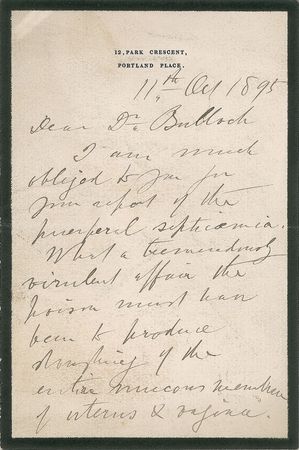 12, PARK CRESCENT,
PORTLAND PLACE.
11th Oct 1895
Dear Dr Bulloch
I am much
obliged to you for
your report of the
puerperal septicæmia.
What a tremendously
virulent affair the
poison must have
been to produce
sloughing of the
entire mucous membrane
of uterus & vagina.